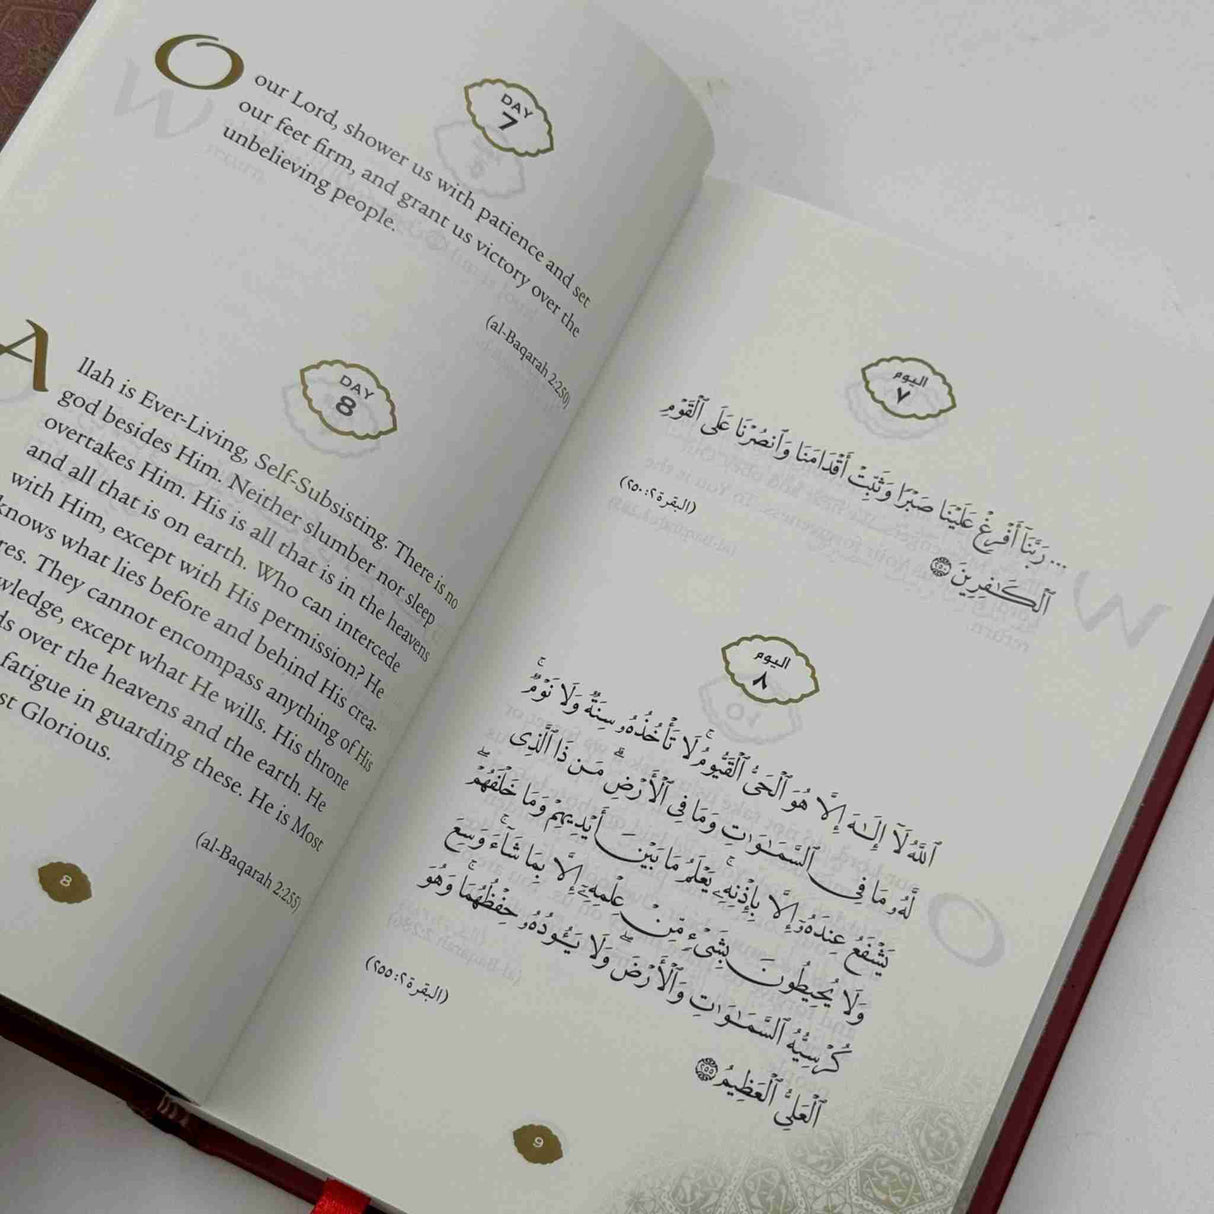 DAY
7
O our Lord, shower us with patience and set
our feet firm, and grant us victory over the
unbelieving people.
(al-Baqarah 2:250)
DAY
8
Allah is Ever-Living, Self-Subsisting. There is no
god besides Him. Neither slumber nor sleep
overtakes Him. His is all that is in the heavens
and all that is on earth. Who can intercede
with Him, except with His permission? He
knows what lies before and behind His crea-
res. They cannot encompass anything of His
wledge, except what He wills. His throne
ds over the heavens and the earth. He
fatigue in guarding these. He is Most
st Glorious.
(al-Baqarah 2:255)
8
اليوم
٧
... رَبَّنَآ أَفْرِغْ عَلَيْنَا صَبْرًا وَثَبِّتْ أَقْدَامَنَا وَٱنصُرْنَا عَلَى ٱلْقَوْمِ
ٱلْكَـٰفِرِينَ ٢٥٠
(البقرة ٢:٢٥٠)
اليوم
٨
ٱللَّهُ لَآ إِلَـٰهَ إِلَّا هُوَ ٱلْحَىُّ ٱلْقَيُّومُ ۚ لَا تَأْخُذُهُۥ سِنَةٌ وَلَا نَوْمٌ ۚ
لَّهُۥ مَا فِى ٱلسَّمَـٰوَٰتِ وَمَا فِى ٱلْأَرْضِ ۗ مَن ذَا ٱلَّذِى
يَشْفَعُ عِندَهُۥٓ إِلَّا بِإِذْنِهِۦ ۚ يَعْلَمُ مَا بَيْنَ أَيْدِيهِمْ وَمَا خَلْفَهُمْ ۖ
وَلَا يُحِيطُونَ بِشَىْءٍ مِّنْ عِلْمِهِۦٓ إِلَّا بِمَا شَآءَ ۚ وَسِعَ
كُرْسِيُّهُ ٱلسَّمَـٰوَٰتِ وَٱلْأَرْضَ ۖ وَلَا يَـُٔودُهُۥ حِفْظُهُمَا ۚ وَهُوَ
ٱلْعَلِىُّ ٱلْعَظِيمُ ٢٥٥
(البقرة ٢:٢٥٥)
9